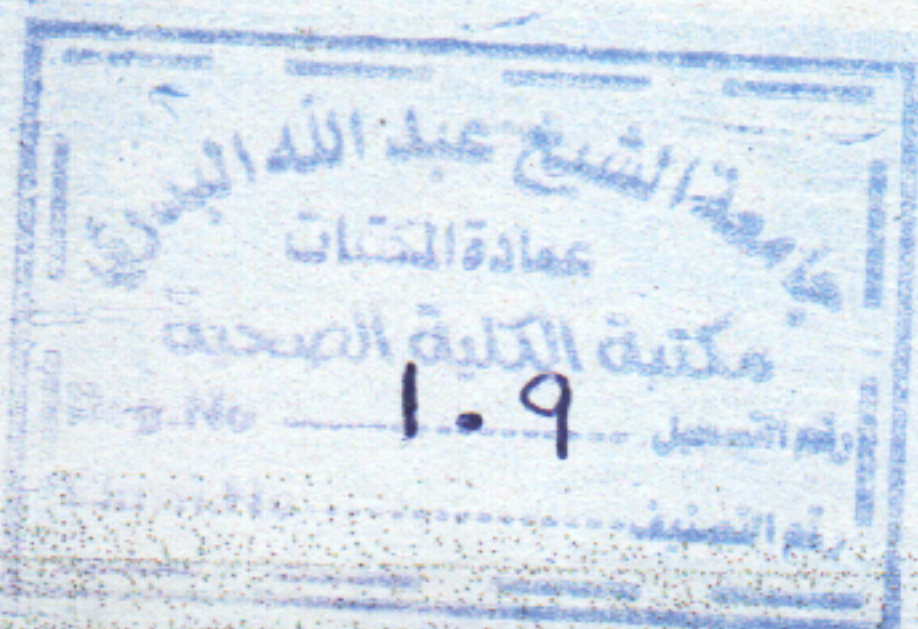 جامعة الشيخ عبد الله البدري
عمادة المكتبات
مكتبة الكلية الصحية
رقم التسجيل ١٠٩
رقم التصنيف